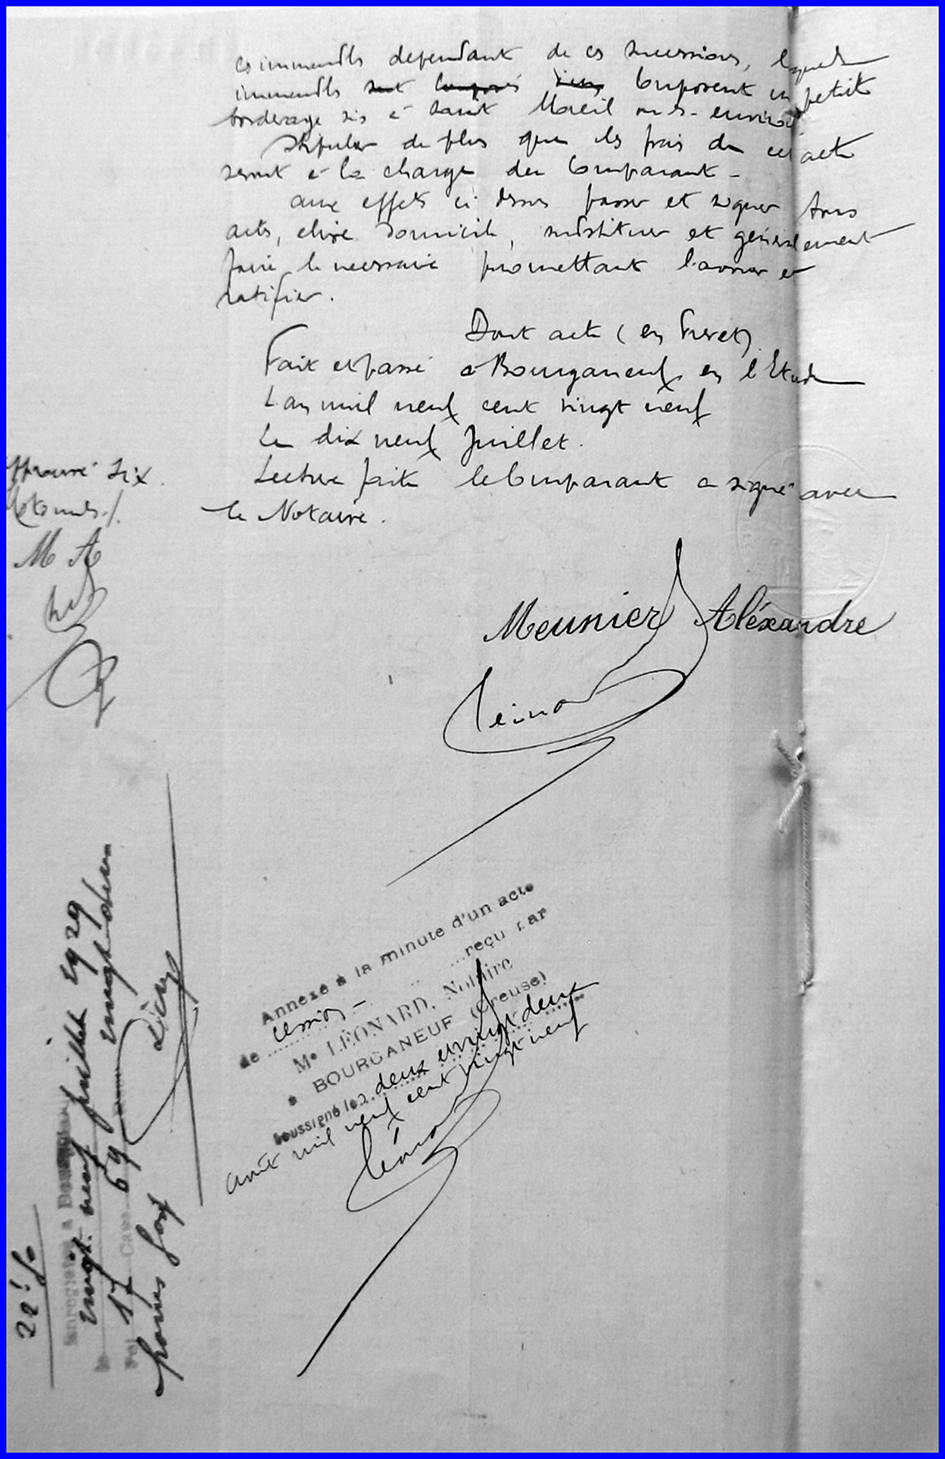 ces immeubles dépendant de ces successions, lesquels
immeubles composent un petit
borderage sis à Saint Moreil
Stipuler de plus que les frais de cet acte
seront à la charge du Comparant -
aux effets ci dessus passer et signer tous
actes, élire domicile, substituer et généralement
faire le nécessaire promettant l'avouer et
ratifier.
Dont acte (en brevet)
Fait et passé à Bourganeuf, en l'Etude
L'an mil neuf cent vingt neuf
Le dix neuf Juillet.
Lecture faite le Comparant a signé avec
le Notaire.
approuvé six
mots nuls ./.
M A
Meunier Aléxandre
Léonard
Annexé à la minute d'un acte
de cession - reçu par
Me LÉONARD, Notaire
à BOURGANEUF (Creuse)
soussigné le deux vingt deux
août mil neuf cent vingt neuf
Léonard
22 f 50
Enregistré à
le vingt neuf juillet 1929
Fol 17 Case 69